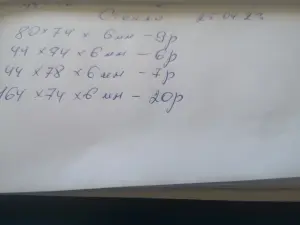 80×74 × 6мм – 9р
44×94 × 6мм – 6р
44×78 × 6мм – 7р
164×74×6мм – 20р